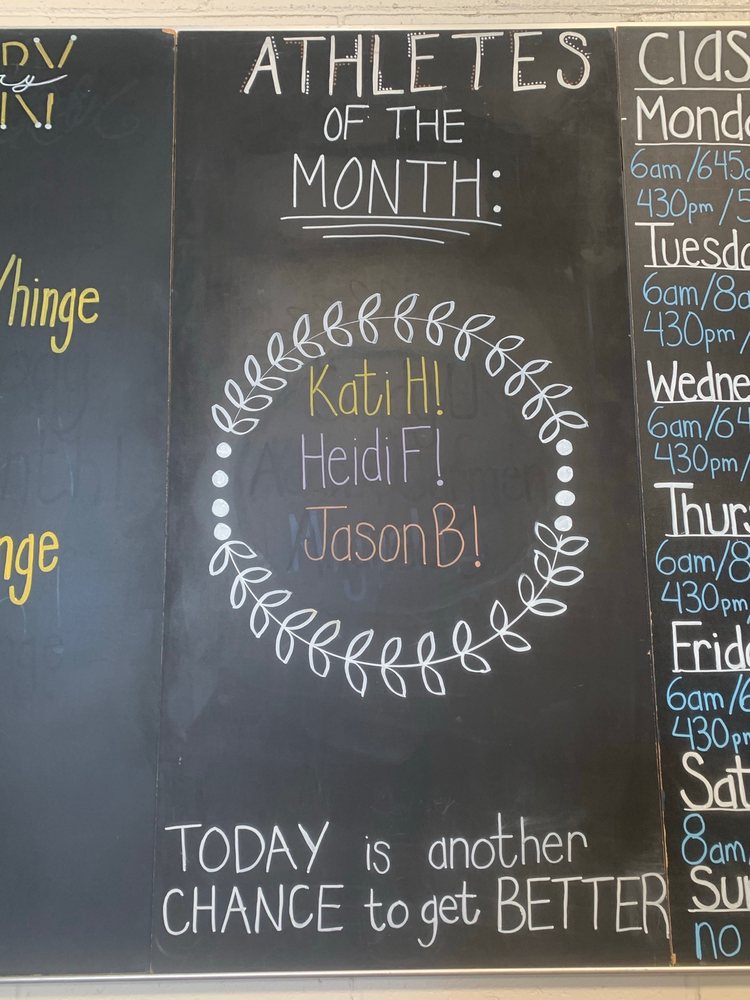 /hinge
ATHLETES
OF THE
MONTH:
Kati H!
Heidi F!
Jason B!
TODAY is another
CHANCE to get BETTER
Clas
Monda
6am/645a
430pm/5
Tuesda
6am/8a
430pm/
Wedne
6am/64
430pm/
Thurs
6am/8
430pm/
Frida
6am/6
430pm
Sat
8am/
Sun
no